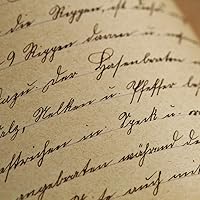 die Rippen, ist dieses
9 Rippen daran u. 
dazu der Hasenbraten
Salz, Nelken u Pfeffer
bestrichen in Speck u.
angebraten während
auch mit